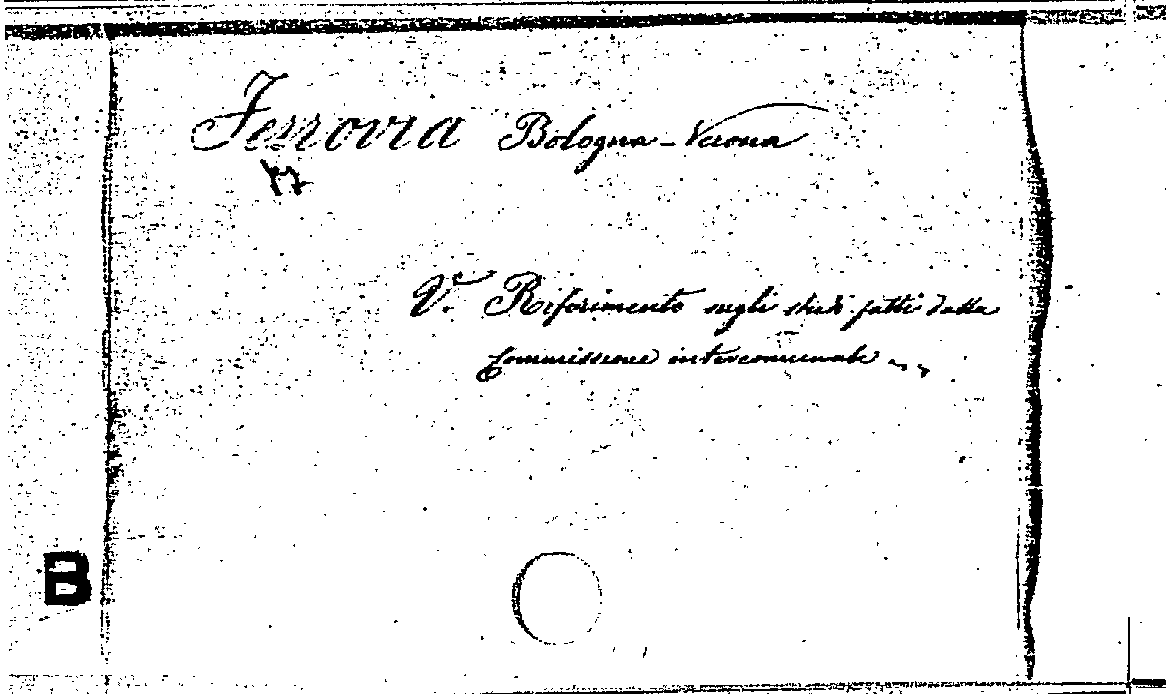 Ferrovia Bologna-Verona
V. Riferimento sugli studi fatti dalla
Commissione intercomunale
B